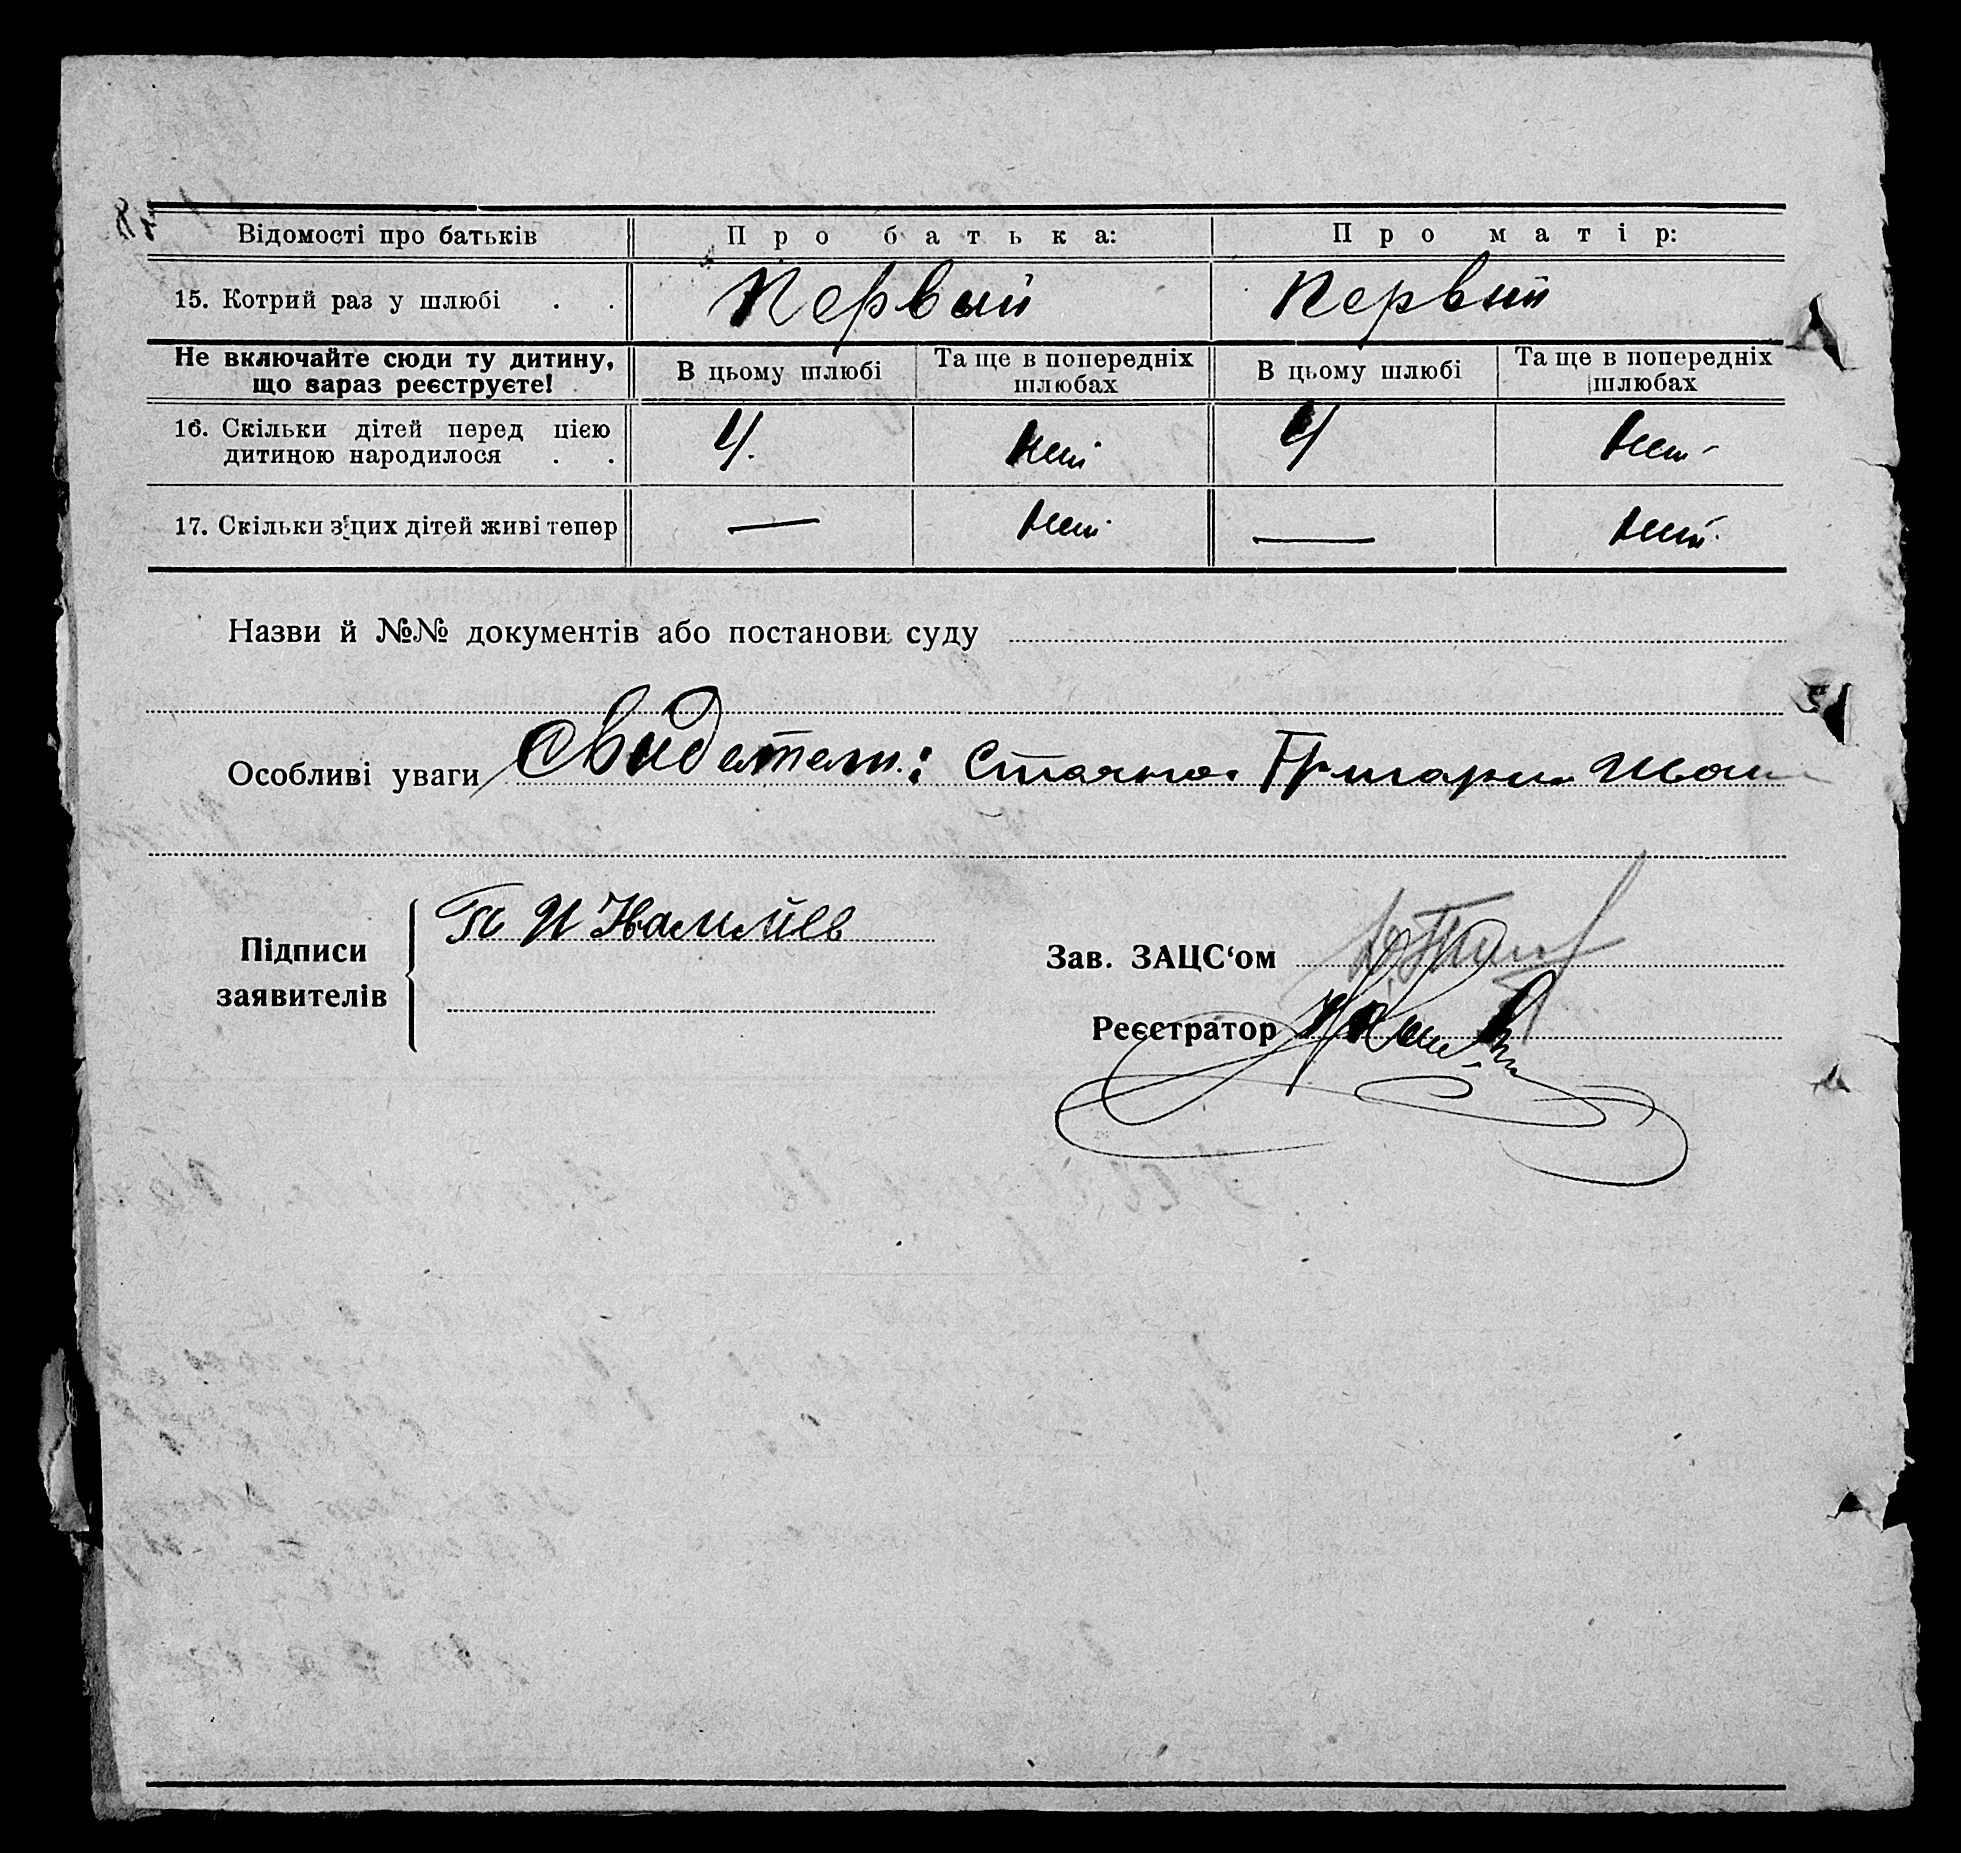 Відомості про батьків Про батька: Про матір:
15. Котрий раз у шлюбі . . Первый Первый
Не включайте сюди ту дитину, що зараз реєструєте! В цьому шлюбі Та ще в попередніх шлюбах В цьому шлюбі Та ще в попередніх шлюбах
16. Скільки дітей перед цією дитиною народилося . . 4. нет 4 нет
17. Скільки з цих дітей живі тепер — нет — нет
Назви й №№ документів або постанови суду
Особливі уваги Свидетели: Григори Иван
Підписи заявителів
Зав. ЗАЦС‘ом
Реєстратор